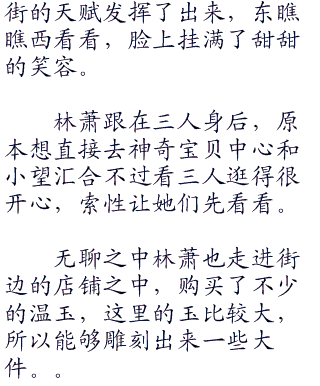 街的天赋发挥了出来，东瞧
瞧西看看，脸上挂满了甜甜
的笑容。
林萧跟在三人身后，原
本想直接去神奇宝贝中心和
小望汇合不过看三人逛得很
开心，索性让她们先看看。
无聊之中林萧也走进街
边的店铺之中，购买了不少
的温玉，这里的玉比较大，
所以能够雕刻出来一些大
件。。